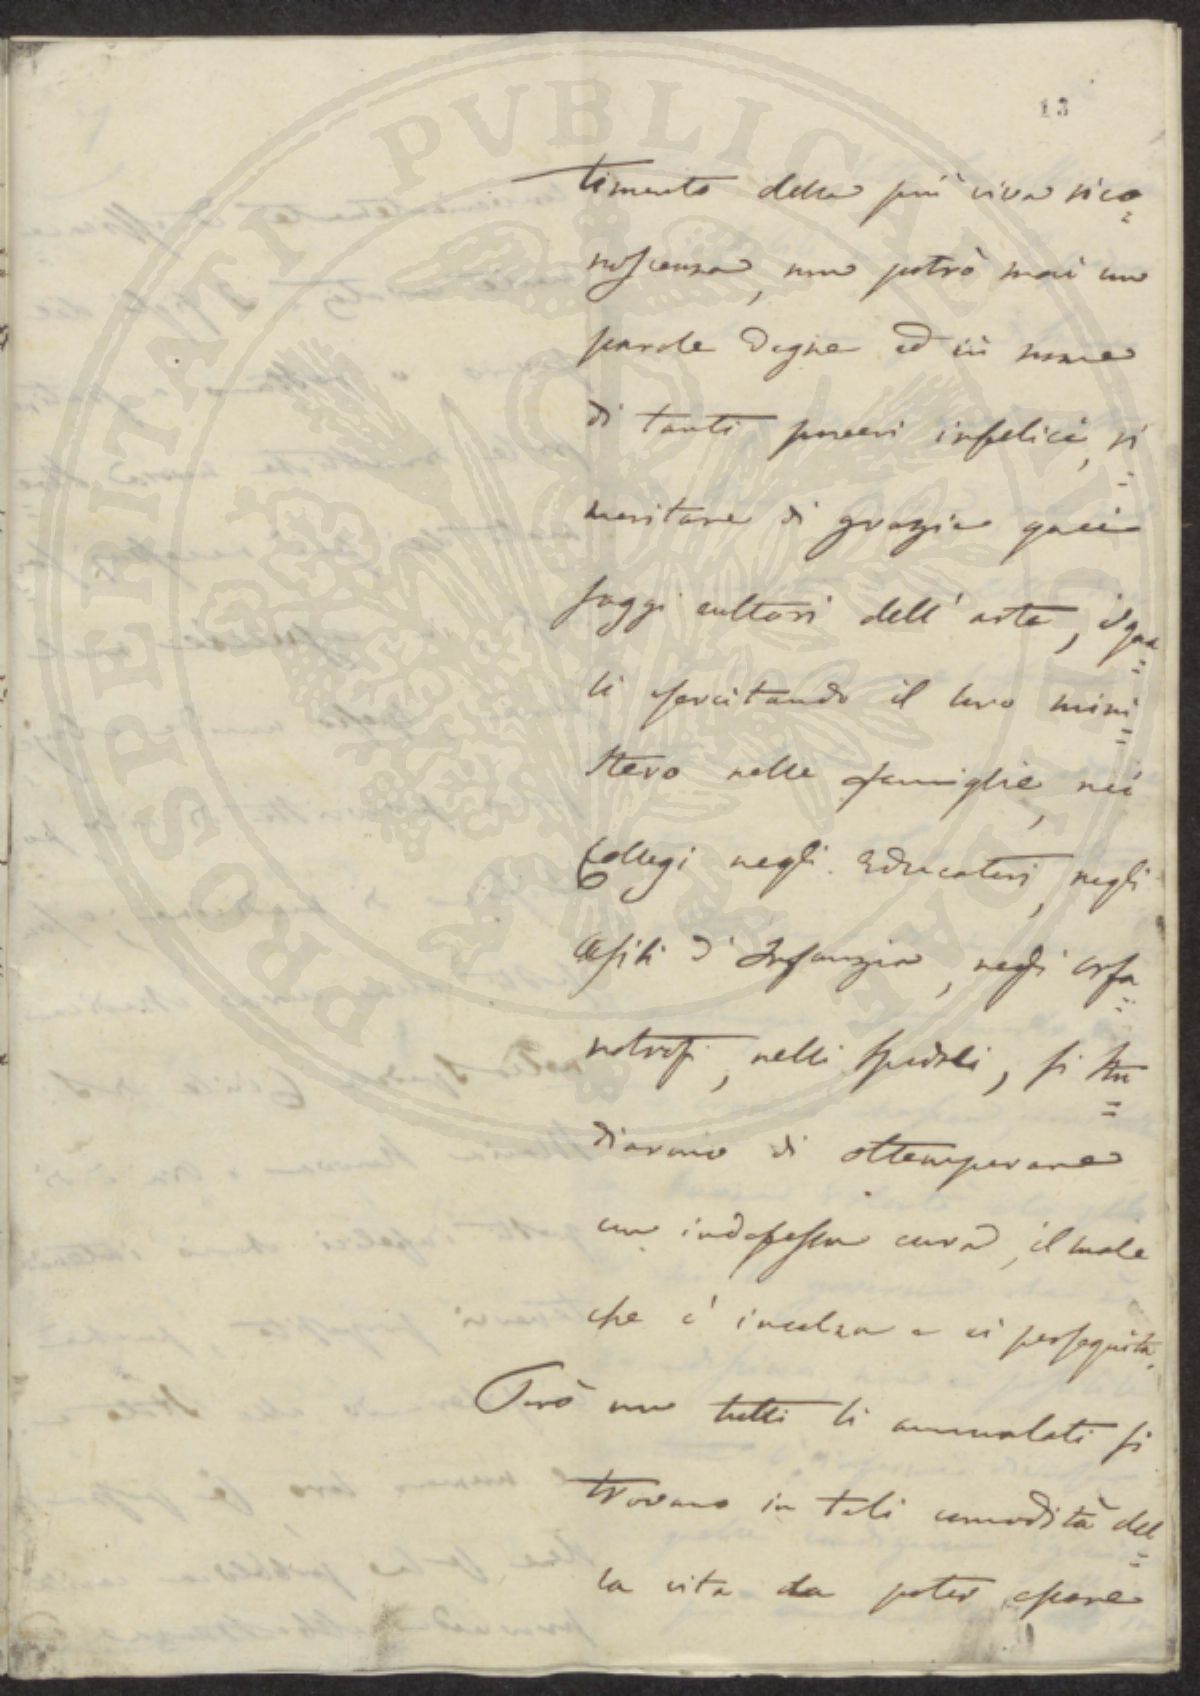 13
timento della più viva rico=
noscenza, non potrò mai con
parole degne ed in nome
di tanti poveri infelici, ri=
meritare di grazie quei
saggi cultori dell' arte, i qua=
li esercitando il loro mini=
stero nelle famiglie, nei
Collegi negli Educatori, negli
Asili d' Infanzia, negli orfa=
notrofi, nelli Spedali, si stu=
diarono di ottemperare
con indefessa cura, il male
che c' incalza e ci perseguita.
Però non tutti li ammalati si
trovano in tali comodità del=
la vita da poter essere
PROSPERITATI PVBLICAE AVGENDAE